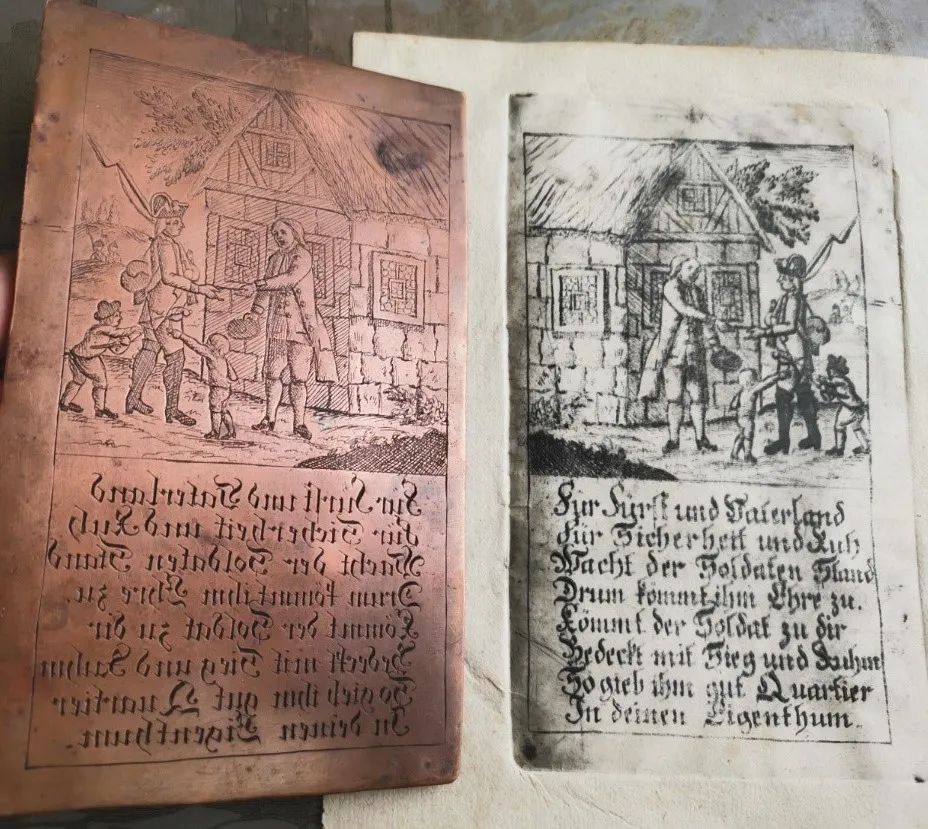 Für Fürst und Vaterland
Für Sicherheit und Ruh
Wacht der Soldaten Stand
Drum kömmt ihm Ehre zu.
Kömmt der Soldat zu dir
Bedeckt mit Sieg und Ruhm
So gieb ihm gut Quartier
In deinen Eigenthum.
Für Fürst und Vaterland
Für Sicherheit und Ruh
Wacht der Soldaten Stand
Drum kömmt ihm Ehre zu.
Kömmt der Soldat zu dir
Bedeckt mit Sieg und Ruhm
So gieb ihm gut Quartier
In deinen Eigenthum.